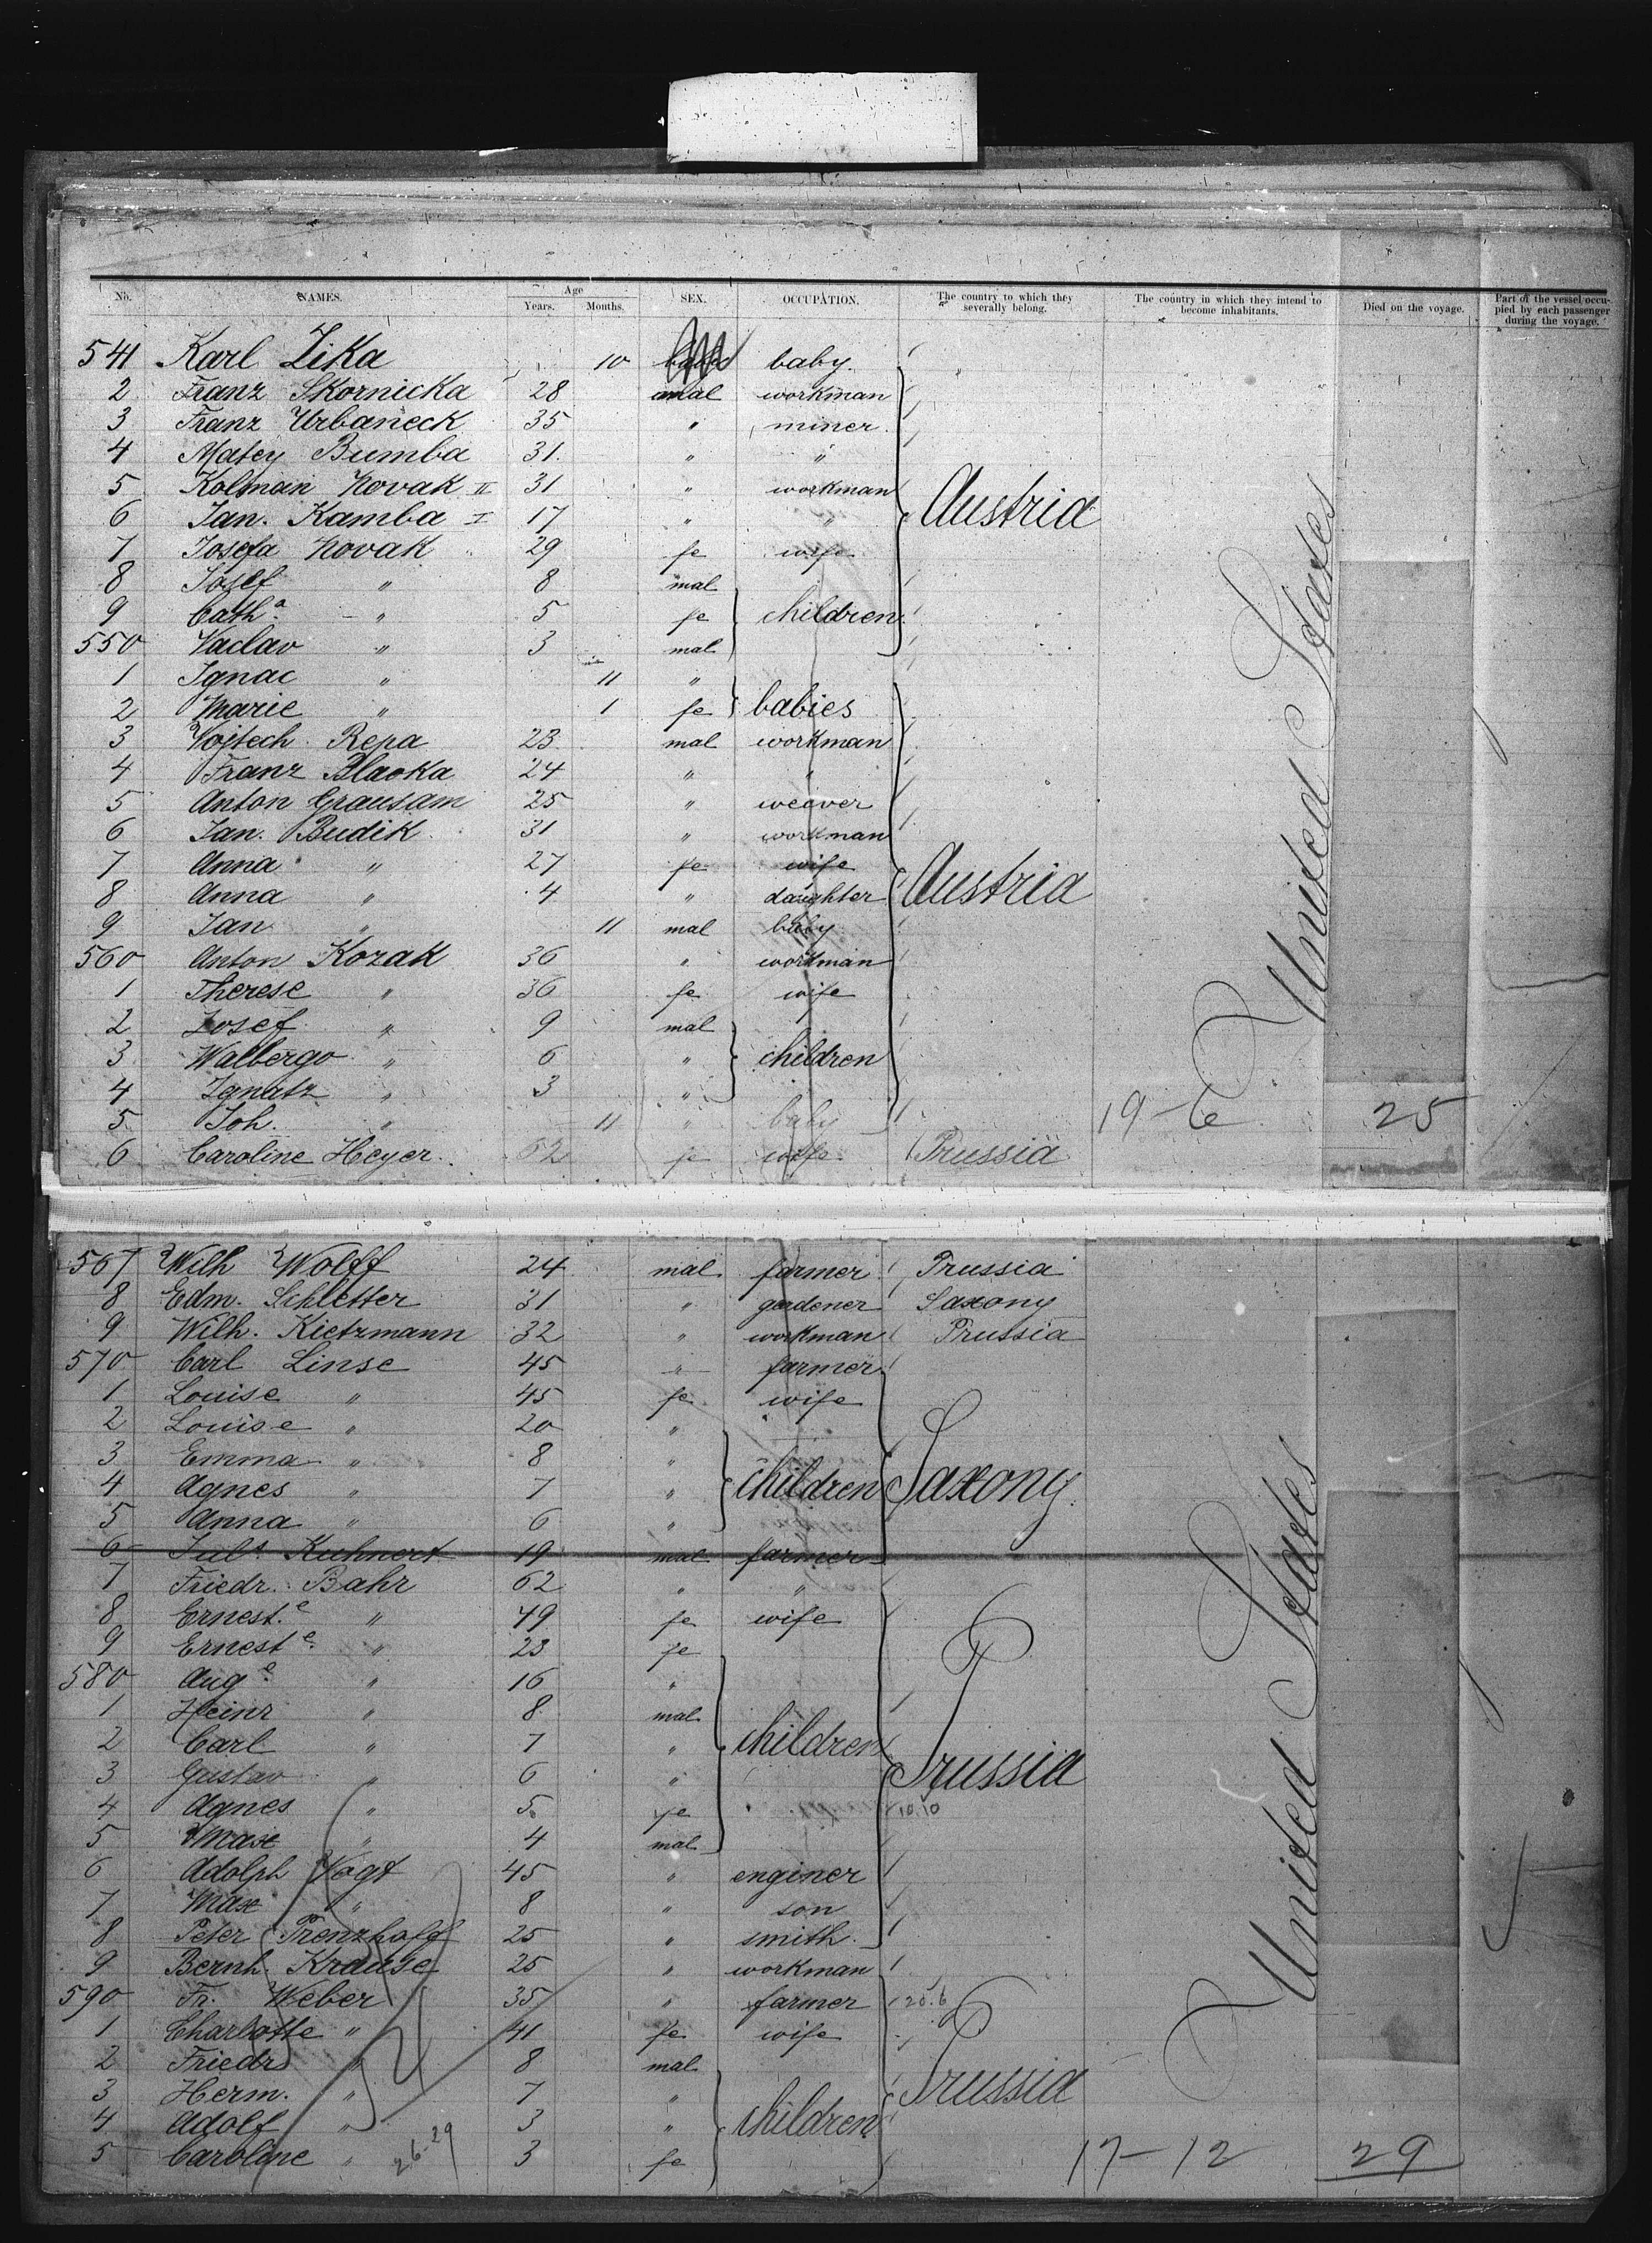 No. NAMES. Age Years. Months. SEX. OCCUPATION. The country to which they severally belong. The country in which they intend to become inhabitants. Died on the voyage. Part of the vessel occupied by each passenger during the voyage.
541 Karl Zika 10 baby.
2 Franz Skornicka 28 mal workman
3 Franz Urbaneck 35 " miner.
4 Matey Bumba 31. " "
5 Kolman Novak II 31 " workman
6 Jan. Kamba I 17 " " Austria
7 Josefa Novak 29 fe wife
8 Josef " 8 mal
9 Cath.a " 5 fe children
550 Vaclav " 3 mal
1 Ignac " 11 "
2 Marie " 1 fe babies
3 Vojtech Repa 23 mal workman
4 Franz Blaoka 24 " "
5 Anton Grausam 25 " weaver
6 Jan. Budik 31 " workman
7 Anna " 27 fe wife
8 Anna " 4 " daughter Austria
9 Jan " 11 mal baby
560 Anton Kozak 36 " workman
1 Therese " 36 fe wife
2 Josef " 9 mal
3 Walbergo " 6 " children
4 Ignatz " 3 "
5 Joh. " 11 " baby
6 Caroline Heyer. 52 fe wife Prussia
United States
19-6 25
567 Wilh Wolff 24 mal farmer Prussia
8 Edm. Schletter 31 " gardener Saxony
9 Wilh. Kietzmann 32 " workman Prussia
570 Carl Linse 45 " farmer
1 Louise " 45 fe wife
2 Louise " 20 "
3 Emma " 8 "
4 Agnes " 7 " children Saxony.
5 Anna " 6 "
6 Juls. Kuhnert 19 mal farmer
7 Friedr. Bahr 62 " "
8 Ernest.e " 49 fe wife
9 Ernest.e " 23 fe
580 Aug.e " 16 "
1 Heinr " 8 mal
2 Carl " 7 " children
3 Gustav " 6 " Prussia
4 Agnes " 5 fe 10.10
5 Max " 4 mal
6 Adolph Vogt 45 " enginer
7 Max " 8 " son
8 Peter Prenzhoff 25 " smith.
9 Bernh. Krause 25 " workman
590 Fr. Weber 35 " farmer 20.6
1 Charlotte " 41 fe wife
2 Friedr " 8 mal
3 Herm. " 7 " Prussia
4 Adolf " 3 " children
5 Caroline " 3 fe
United States
26-29
17-12 29